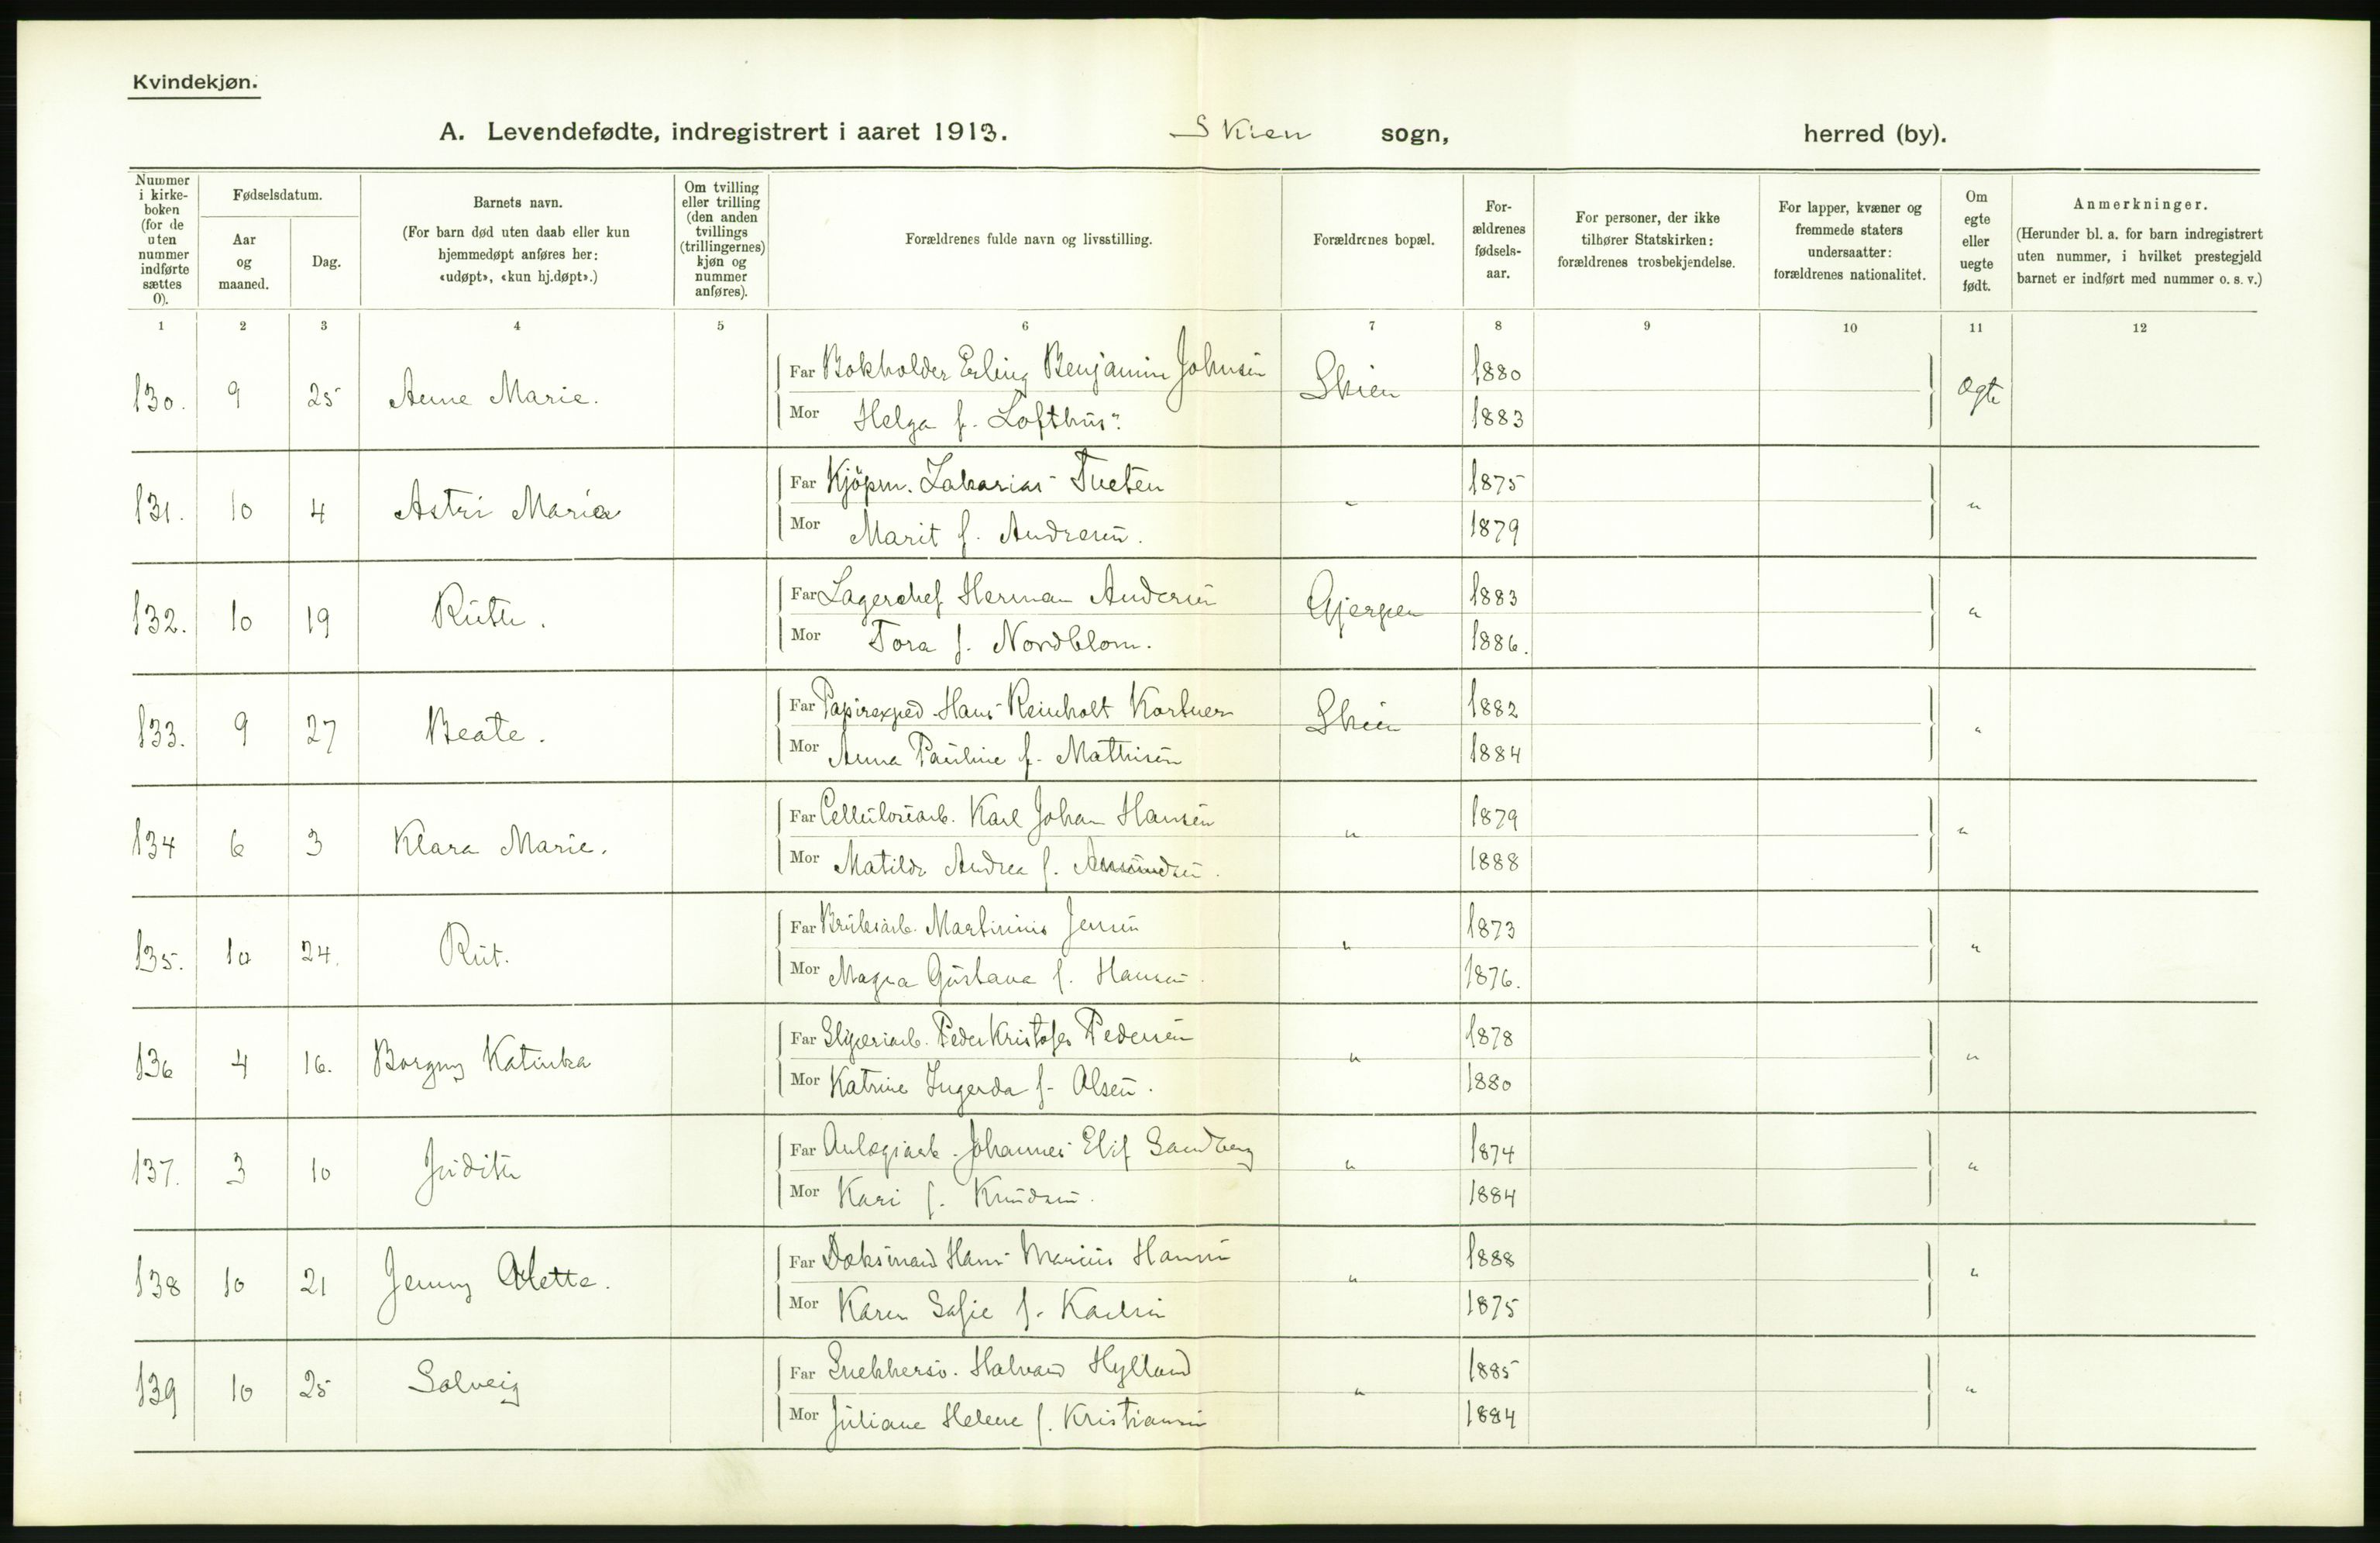 Kvindekjøn.
A. Levendefødte, indregistrert i aaret 1913. Skien sogn, herred (by).
Nummer i kirke-boken (for de uten nummer indførte sættes 0).
Fødselsdatum.
Aar og maaned.
Dag.
Barnets navn.
(For barn død uten daab eller kun hjemmedøpt anføres her: «udøpt», «kun hj.døpt».)
Om tvilling eller trilling (den anden tvillings (trillingernes) kjøn og nummer anføres).
Forældrenes fulde navn og livsstilling.
Forældrenes bopæl.
For-ældrenes fødsels-aar.
For personer, der ikke tilhører Statskirken: forældrenes trosbekjendelse.
For lapper, kvæner og fremmede staters undersaatter: forældrenes nationalitet.
Om egte eller uegte født.
Anmerkninger.
(Herunder bl. a. for barn indregistrert uten nummer, i hvilket prestegjeld barnet er indført med nummer o. s. v.)
1 2 3 4 5 6 7 8 9 10 11 12
Far Bokholder Erling Benjamin Johnsen 1880
130. 9 25 Anne Marie. Skien Ægte
Mor Helga f. Lofthus 1883
Far Kjöpm. Zakarias Tveten 1875
131. 10 4 Astri Maria "
Mor Marit f. Andresen. 1879
Far Lagerchef Herman Andersen 1883
132. 10 19 Ruth. Gjerpen "
Mor Tora f. Nordblom. 1886.
Far Papirexped Hans Reinholt Kortner 1882
133. 9 27 Beate. Skien "
Mor Anna Pauline f. Mathisen 1884
Far Cellulosearb. Karl Johan Hansen 1879
134 6 3 Klara Marie. " "
Mor Matilde Andrea f. Amundsen. 1888
Far Bruksarb. Martinius Jensen 1873
135. 10 24. Rut. " "
Mor Magna Gustava f. Hansen. 1876.
Far Sliperiarb. Peder Kristofer Pedersen 1878
136 4 16. Borgny Katinka " "
Mor Katrine Ingerda f. Olsen. 1880
Far Anlægsarb. Johannes Elif Sandberg 1874
137. 3 10 Judith " "
Mor Kari f. Knudsen. 1884
Far Hans Marius Hansen 1888
138 10 21 Jenny Alette. " "
Mor Karen Sofie f. Karlsen 1875
Far Snekkersv. Halvard Hylland 1885
139 10 25 Solveig " "
Mor Juliane Helene f. Kristiansen 1884